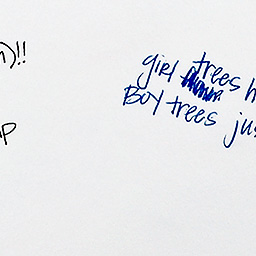 )!!
girl trees h
Boy trees jus
p